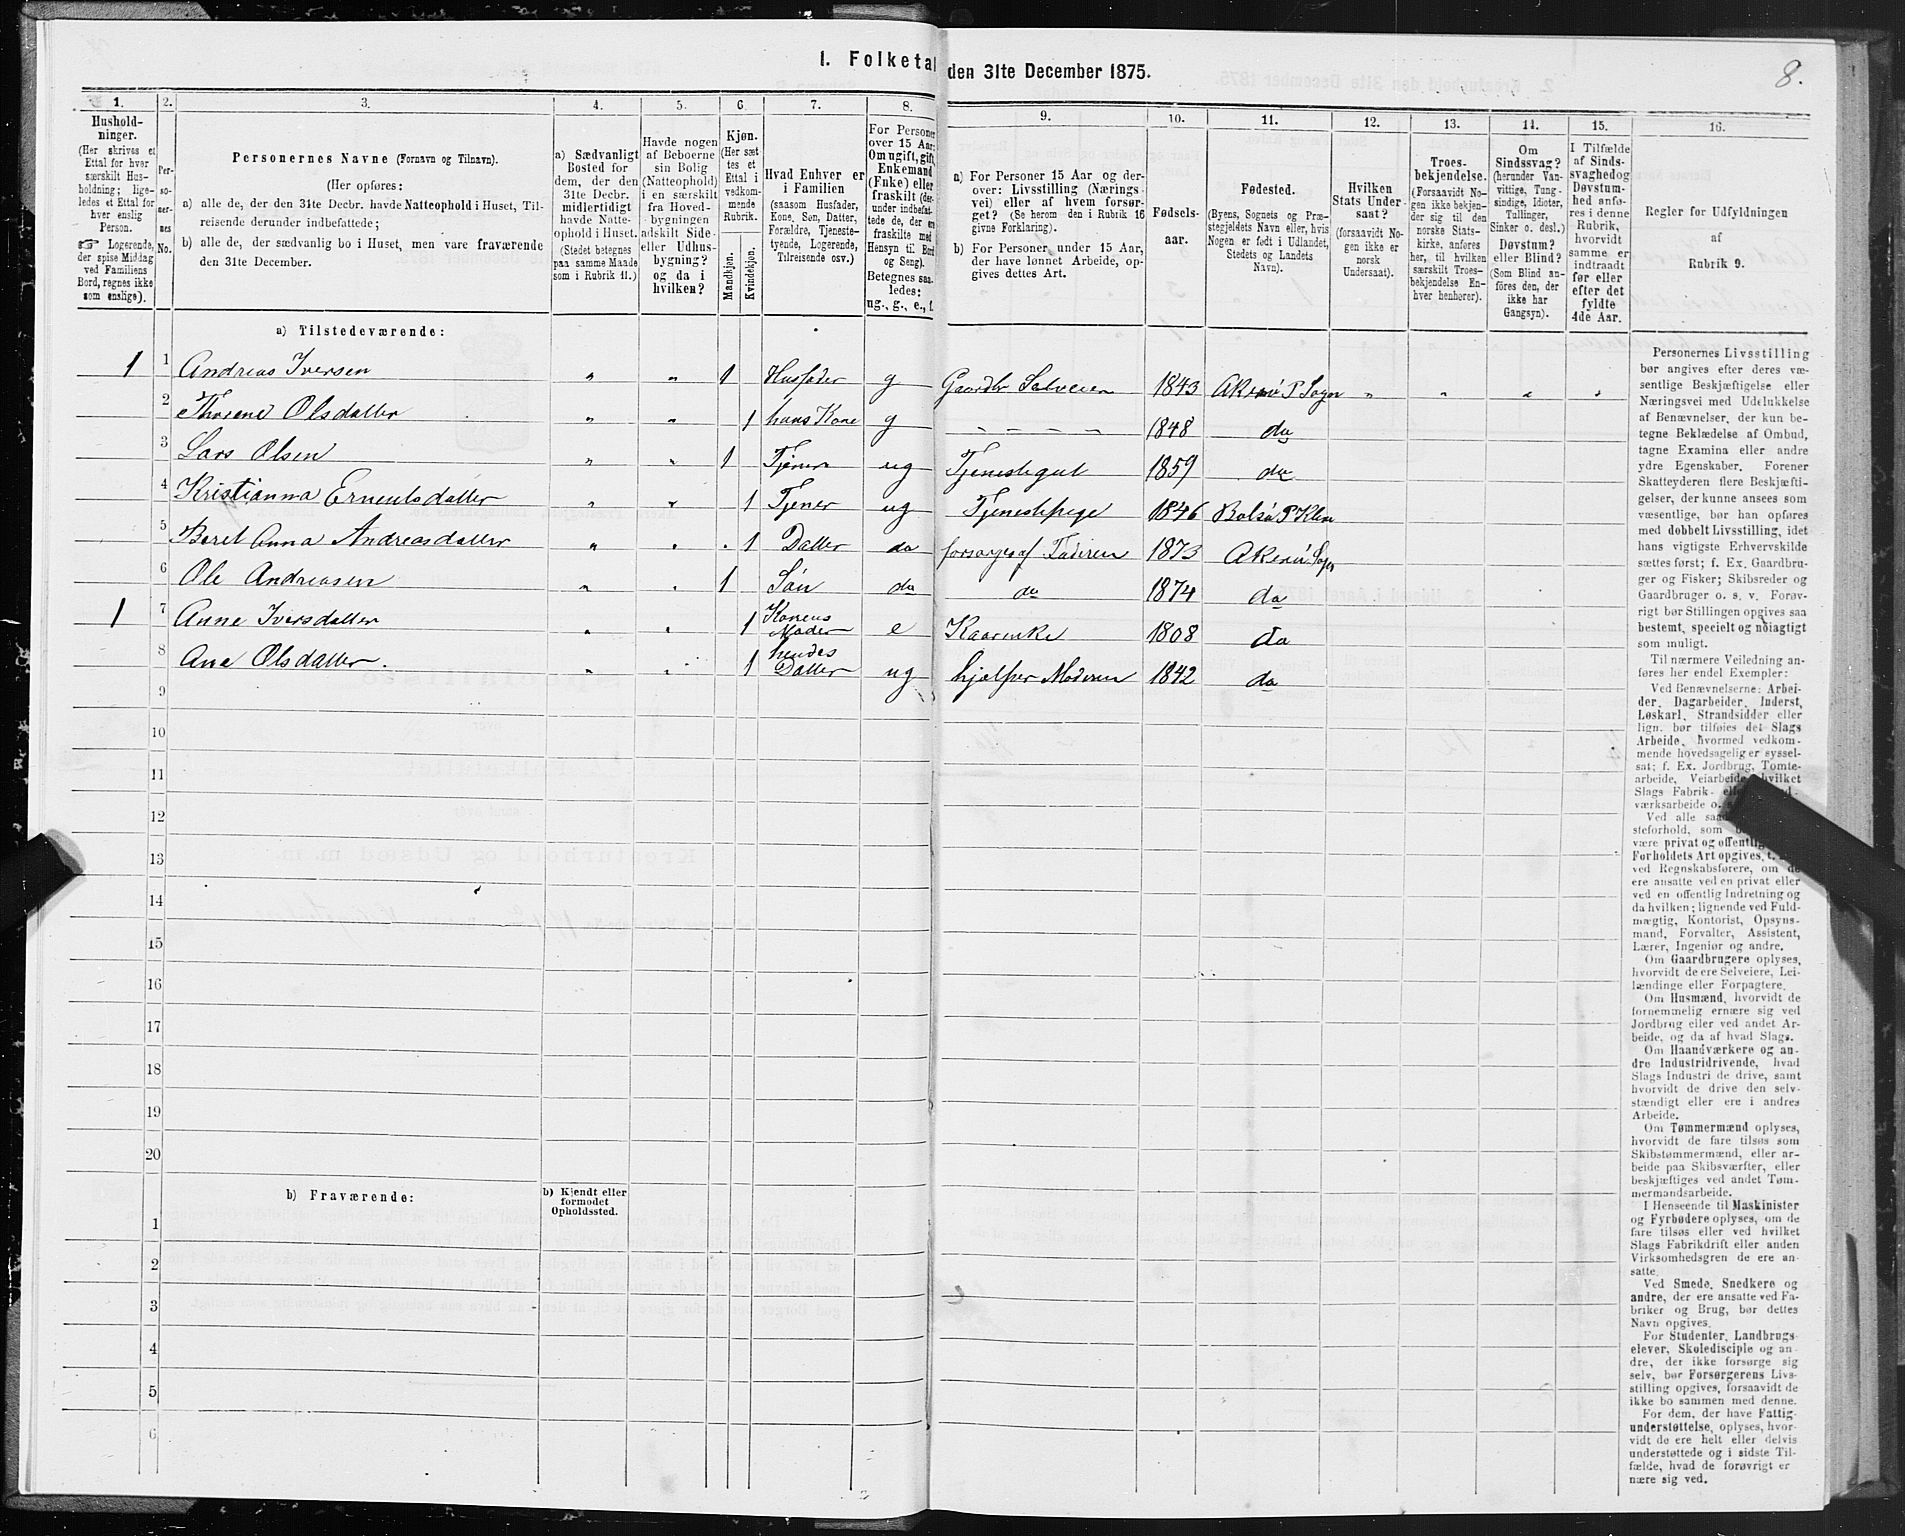 8.
1. Folketal den 31te December 1875.
1. 2. 3. 4. 5. 6. 7. 8. 9. 10. 11. 12. 13. 14. 15. 16.
Hushold-
ninger.
(Her skrives et
Ettal for hver
særskilt Hus-
holdning; lige-
ledes et Ettal for
hver enslig
Person.
☞ Logerende,
der spise Middag
ved Familiens
Bord, regnes ikke
som enslige).
Per-
so-
ner-
nes
No.
Personernes Navne (Fornavn og Tilnavn).
(Her opføres:
a) alle de, der den 31te Decbr. havde Natteophold i Huset, Til-
reisende derunder indbefattede;
b) alle de, der sædvanlig bo i Huset, men vare fraværende
den 31te December.
a) Sædvanligt
Bosted for
dem, der den
31te Decbr.
midlertidigt
havde Natte-
ophold i Huset.
(Stedet betegnes
paa samme Maade
som i Rubrik 11.)
Havde nogen
af Beboerne
sin Bolig
(Natteophold)
i en særskilt
fra Hoved-
bygningen
adskilt Side-
eller Udhus-
bygning?
og da i
hvilken?
Kjøn.
(Her sæt-
tes et
Ettal i
vedkom-
mende
Rubrik.
Mandkjøn.
Kvindekjøn.
Hvad Enhver er
i Familien
(saasom Husfader,
Kone, Søn, Datter,
Forældre, Tjeneste-
tyende, Logerende,
Tilreisende osv.)
For Personer
over 15 Aar:
Om ugift, gift,
Enkemand
(Enke) eller
fraskilt (der-
under indbefat-
tede de, der ere
fraskilte med
Hensyn til Bord
og Seng).
Betegnes saa-
ledes:
ug., g., e., f.
a) For Personer 15 Aar og der-
over: Livsstilling (Nærings-
vei) eller af hvem forsør-
get? (Se herom den i Rubrik 16
givne Forklaring).
b) For Personer under 15 Aar,
der have lønnet Arbeide, op-
gives dettes Art.
Fødsels-
aar.
Fødested.
(Byens, Sognets og Præ-
stegjeldets Navn eller, hvis
Nogen er født i Udlandet,
Stedets og Landets
Navn).
Hvilken
Stats Under-
saat?
(forsaavidt No-
gen ikke er
norsk
Undersaat).
Troes-
bekjendelse.
(Forsaavidt No-
gen ikke bekjen-
der sig til den
norske Stats-
kirke, anføres
her, til hvilken
særskilt Troes-
bekjendelse En-
hver henhører).
Om
Sindssvag?
(herunder Van-
vittige, Tung-
sindige, Idioter,
Tullinger,
Sinker o. desl.)
Døvstum?
eller Blind?
(Som Blind an-
føres den, der
ikke har
Gangsyn).
I Tilfælde
af Sinds-
svaghed og
Døvstum-
hed anfø-
res i denne
Rubrik,
hvorvidt
samme er
indtraadt
før eller
efter det
fyldte
4de Aar.
Regler for Udfyldningen
af
Rubrik 9.
a) Tilstedeværende:
1 1 Andreas Iversen „ „ 1 Husfader g Gaardbr Selveier 1843 Akerö P. Sogn „ „ „ „
2 Olsdatter „ „ 1 hans Kone g „ „ „ „ 1848 do
3 Lars Olsen „ „ 1 Tjener ug Tjenestegut 1859 do
4 Kristianna „ „ 1 Tjener ug Tjenestepige 1846 Bolsö P
5 Beret Anna Andreasdatter „ „ „ 1 Datter do forsørges af Faderen 1873 Akerö Sogn
6 Ole Andreasen „ „ 1 Sön do do 1874 do
1 7 Anne Iversdatter „ „ 1 Konens Moder e Kaarenke 1808 do
8 Ane Olsdatter. „ „ 1 hendes Datter ug hjælper Moderen 1842 do
9
10
11
12
13
14
15
16
17
18
19
20
b) Fraværende:
b) Kjendt eller
formodet
Opholdssted.
1
2
3
4
5
6
Personernes Livsstilling
bør angives efter deres væ-
sentlige Beskjæftigelse eller
Næringsvei med Udelukkelse
af Benævnelser, der kun be-
tegne Beklædelse af Ombud,
tagne Examina eller andre
ydre Egenskaber. Forener
Skatteyderen flere Beskjæfti-
gelser, der kunne ansees som
væsentlige, bør han opføres
med dobbelt Livsstilling, idet
hans vigtigste Erhvervskilde
sættes først; f. Ex. Gaardbru-
ger og Fisker; Skibsreder og
Gaardbruger o. s. v. Forøv-
rigt bør Stillingen opgives saa
bestemt, specielt og nøiagtigt
som muligt.
Til nærmere Veiledning an-
føres her endel Exempler:
Ved Benævnelserne: Arbei-
der, Dagarbeider, Inderst,
Løskarl, Strandsidder eller
lign. bør tilføies det Slags
Arbeide, hvormed vedkom-
mende hovedsagelig er syssel-
sat; f. Ex. Jordbrug, Tomte-
arbeide, Veiarbeide, hvilket
Slags Fabrik-
værksarbeide o.
Ved alle
steforhold, som
være privat og
Forholdets Art opgives,
ved Regnskabsførere, om de
ere ansatte ved en privat eller
ved en offentlig Indretning og
da hvilken; lignende ved Fuld-
mægtig, Kontorist, Opsyns-
mand, Forvalter, Assistent,
Lærer, Ingeniør og andre.
Om Gaardbrugere oplyses,
hvorvidt de ere Selveiere, Lei-
lændinge eller Forpagtere.
Om Husmænd, hvorvidt de
fornemmelig ernære sig ved
Jordbrug eller ved andet Ar-
beide, og da af hvad Slags.
Om Haandværkere og an-
dre Industridrivende, hvad
Slags Industri de drive, samt
hvorvidt de drive den selv-
stændigt eller ere i andres
Arbeide.
Om Tømmermænd oplyses,
hvorvidt de fare tilsøs som
Skibstømmermænd, eller ar-
beide paa Skibsværfter, eller
beskjæftiges ved andet Tøm-
mermandsarbeide.
I Henseende til Maskinister
og Fyrbødere oplyses, om de
fare tilsøs eller ved hvilket
Slags Fabrikdrift eller anden
Virksomhedsgren de ere an-
satte.
Ved Smede, Snedkere og
andre, der ere ansatte ved Fa-
briker og Brug, bør dettes
Navn opgives.
For Studenter, Landbrugs-
elever, Skoledisciple og an-
dre, der ikke forsørge sig
selv, bør Forsørgerens Livs-
stilling opgives, forsaavidt de
ikke bo sammen med denne.
For dem, der have Fattig-
understøttelse, oplyses, hvor-
vidt de ere helt eller delvis
understøttede og i sidste Til-
fælde, hvad de forøvrigt er-
nære sig ved.